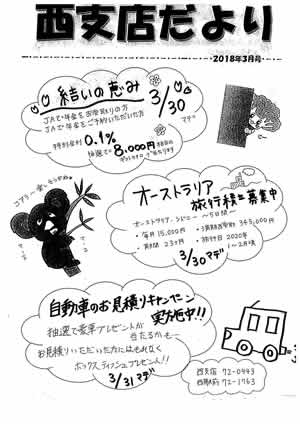 西支店だより
2018年3月号
結いの恵み
3/30
マデ
JAで年金をお受取りの方
JAで年金をご予約いただいた方
特別金利 0.1%
抽選で 8,000円
コアラに会いに行きたいな
オーストラリア
旅行積立募集中
オーストラリア・シドニー 〜5日間〜
・毎月 15,000円
・期間 23ヶ月
・満期受取額 345,000円
・旅行日 2020年
1〜2月頃
3/30マデ
自動車のお見積りキャンペーン
実施中!!
抽選で豪華プレゼントが
当たるかも〜
お見積りいただいた方にはもれなく
ボックスティッシュプレゼント!!
3/31マデ
西支店 72-0443
西駅前 72-1763